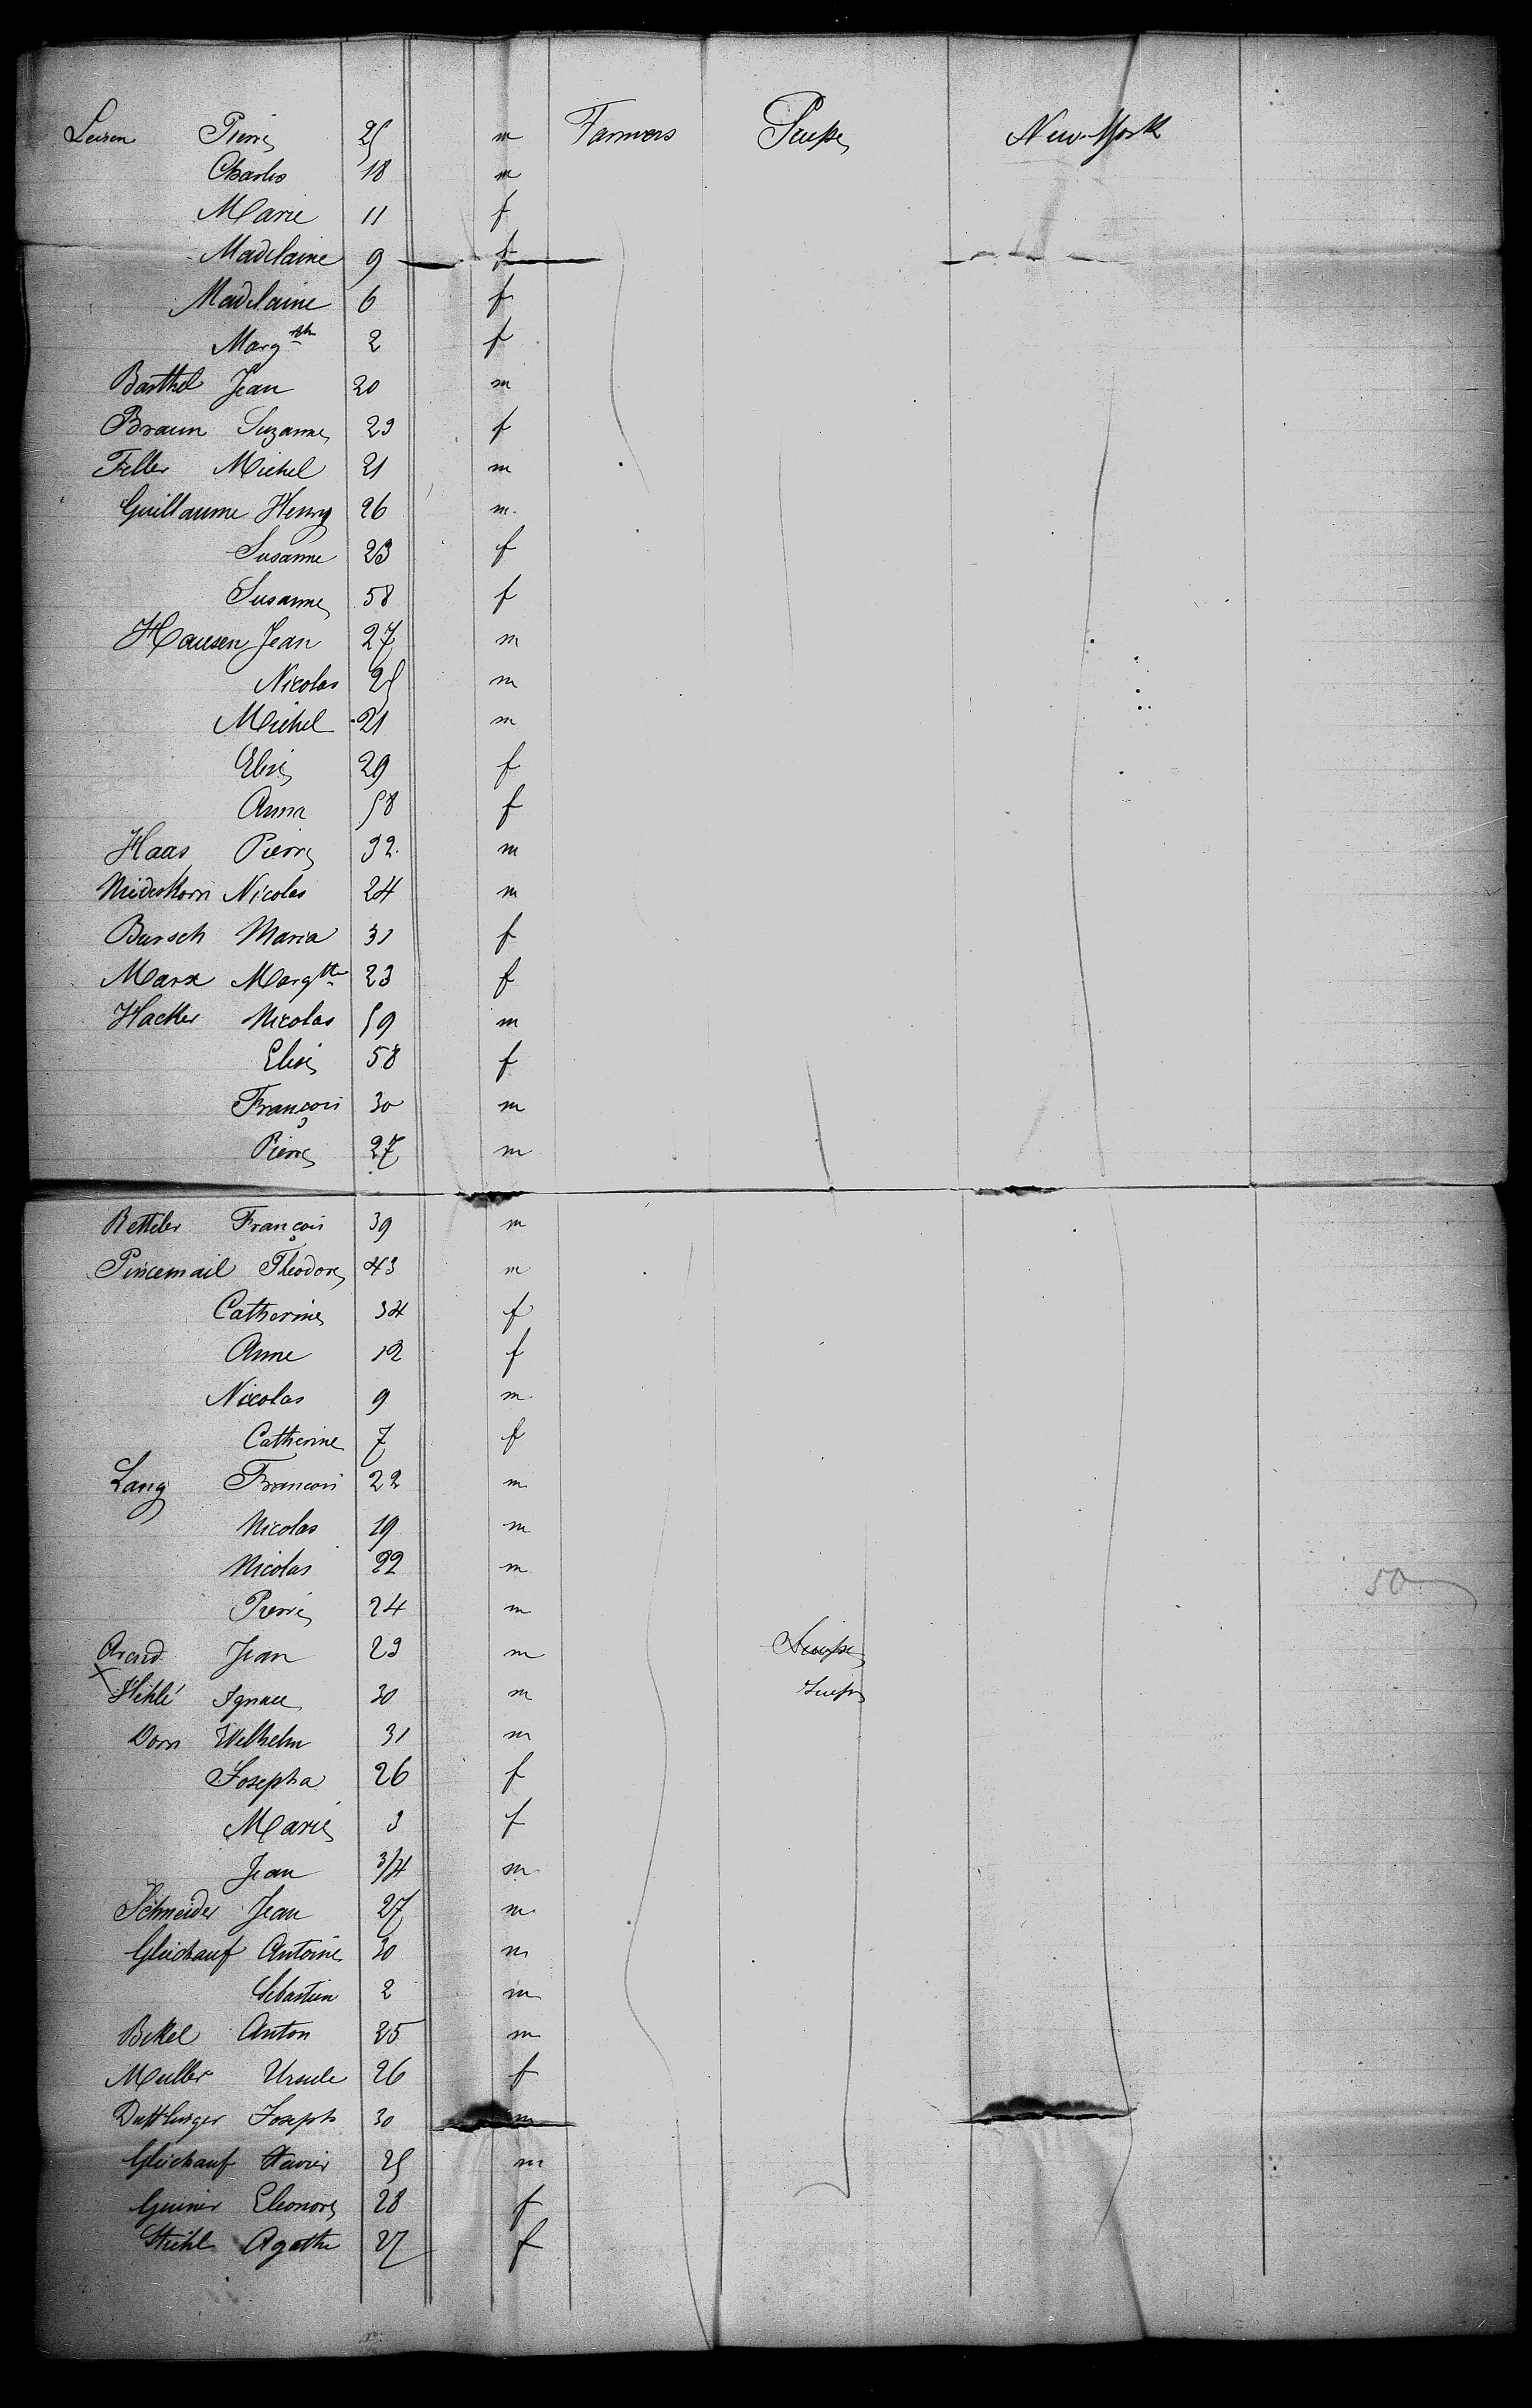 Leisen Pierre 25 m Farmers New-York
Charles 18 m
Marie 11 f
Madelaine 9 f
Madelaine 6 f
Marg<sup>th</sup> 2 f
Barthel Jean 20 m
Braun Suzanne 29 f
Feller Michel 21 m
Guillaume Henry 26 m
Susanne 23 f
Susanne 58 f
Hausen Jean 27 m
Nicolas 25 m
Michel 21 m
Elise 29 f
Anna 58 f
Haas Pierre 32 m
Niederkorn Nicolas 24 m
Bursch Maria 31 f
Marx Marg<sup>tte</sup> 23 f
Hacker Nicolas 59 m
Elise 58 f
François 30 m
Pierre 27 m
Betteler François 39 m
Pincemail Theodore 43 m
Catherine 34 f
Anne 12 f
Nicolas 9 m
Catherine 7 f
Lang Francois 22 m
Nicolas 19 m
Nicolas 22 m
50
Pierre 24 m
Jean 29 m
Hihlé Ignace 30 m
Dorn Wilhelm 31 m
Josepha 26 f
Marie 3 f
Jean 3/4 m
Schneider Jean 27 m
Gleichauf Antoine 30 m
Sebastien 2 m
Bekel Anton 25 m
Muller Ursule 26 f
Duttlinger Joseph 30 m
Gleichauf Xavier 25 m
Eleonore 28 f
Stihl Agathe 27 f